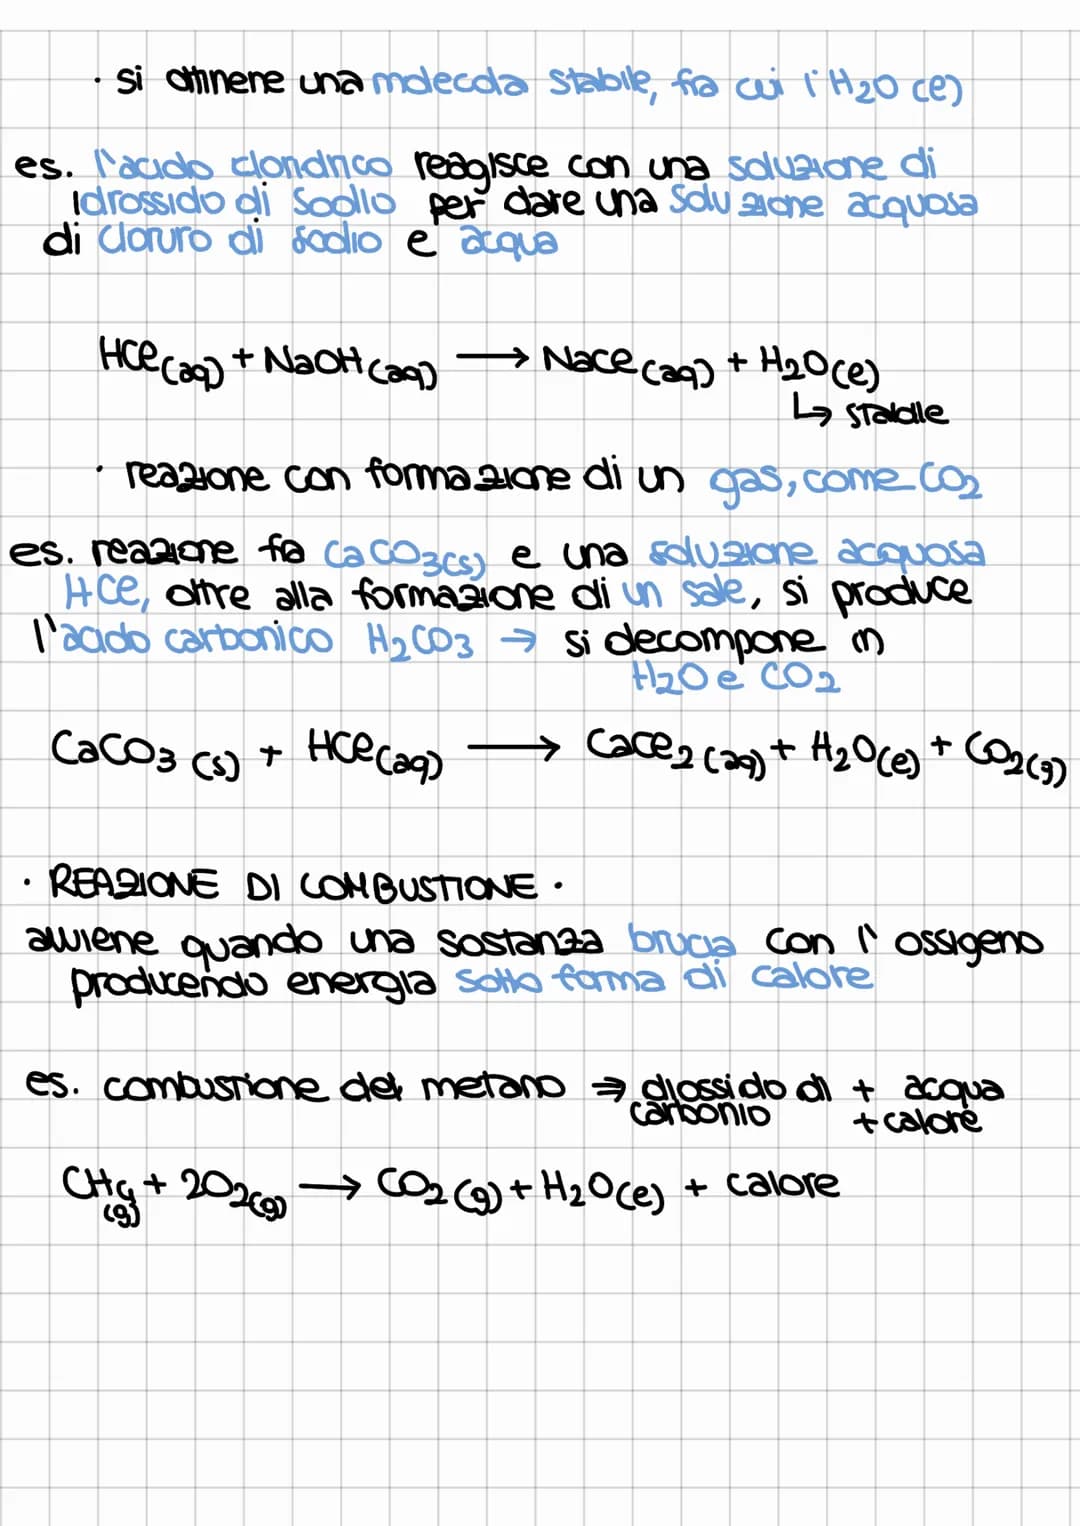 · si ottinene una molecola stabile, fra cui l'H2O (l)
es. l'acido cloridrico reagisce con una soluzione di
idrossido di sodio per dare una soluzione acquosa
di cloruro di sodio e acqua
HCl(aq) + NaOH(aq) → NaCl(aq) + H2O(l)
↳ stabile
· reazione con formazione di un gas, come CO2
es. reazione fra CaCO3(s) e una soluzione acquosa
HCl, oltre alla formazione di un sale, si produce
l'acido carbonico H2CO3 → si decompone in
H2O e CO2
CaCO3 (s) + HCl(aq) → CaCl2 (aq) + H2O(l) + CO2(g)
· REAZIONE DI COMBUSTIONE ·
avviene quando una sostanza brucia con l'ossigeno
producendo energia sotto forma di calore
es. combustione del metano → diossido di + acqua
carbonio + calore
CH4 + 2O2(g) → CO2(g) + H2O(l) + calore
(g)